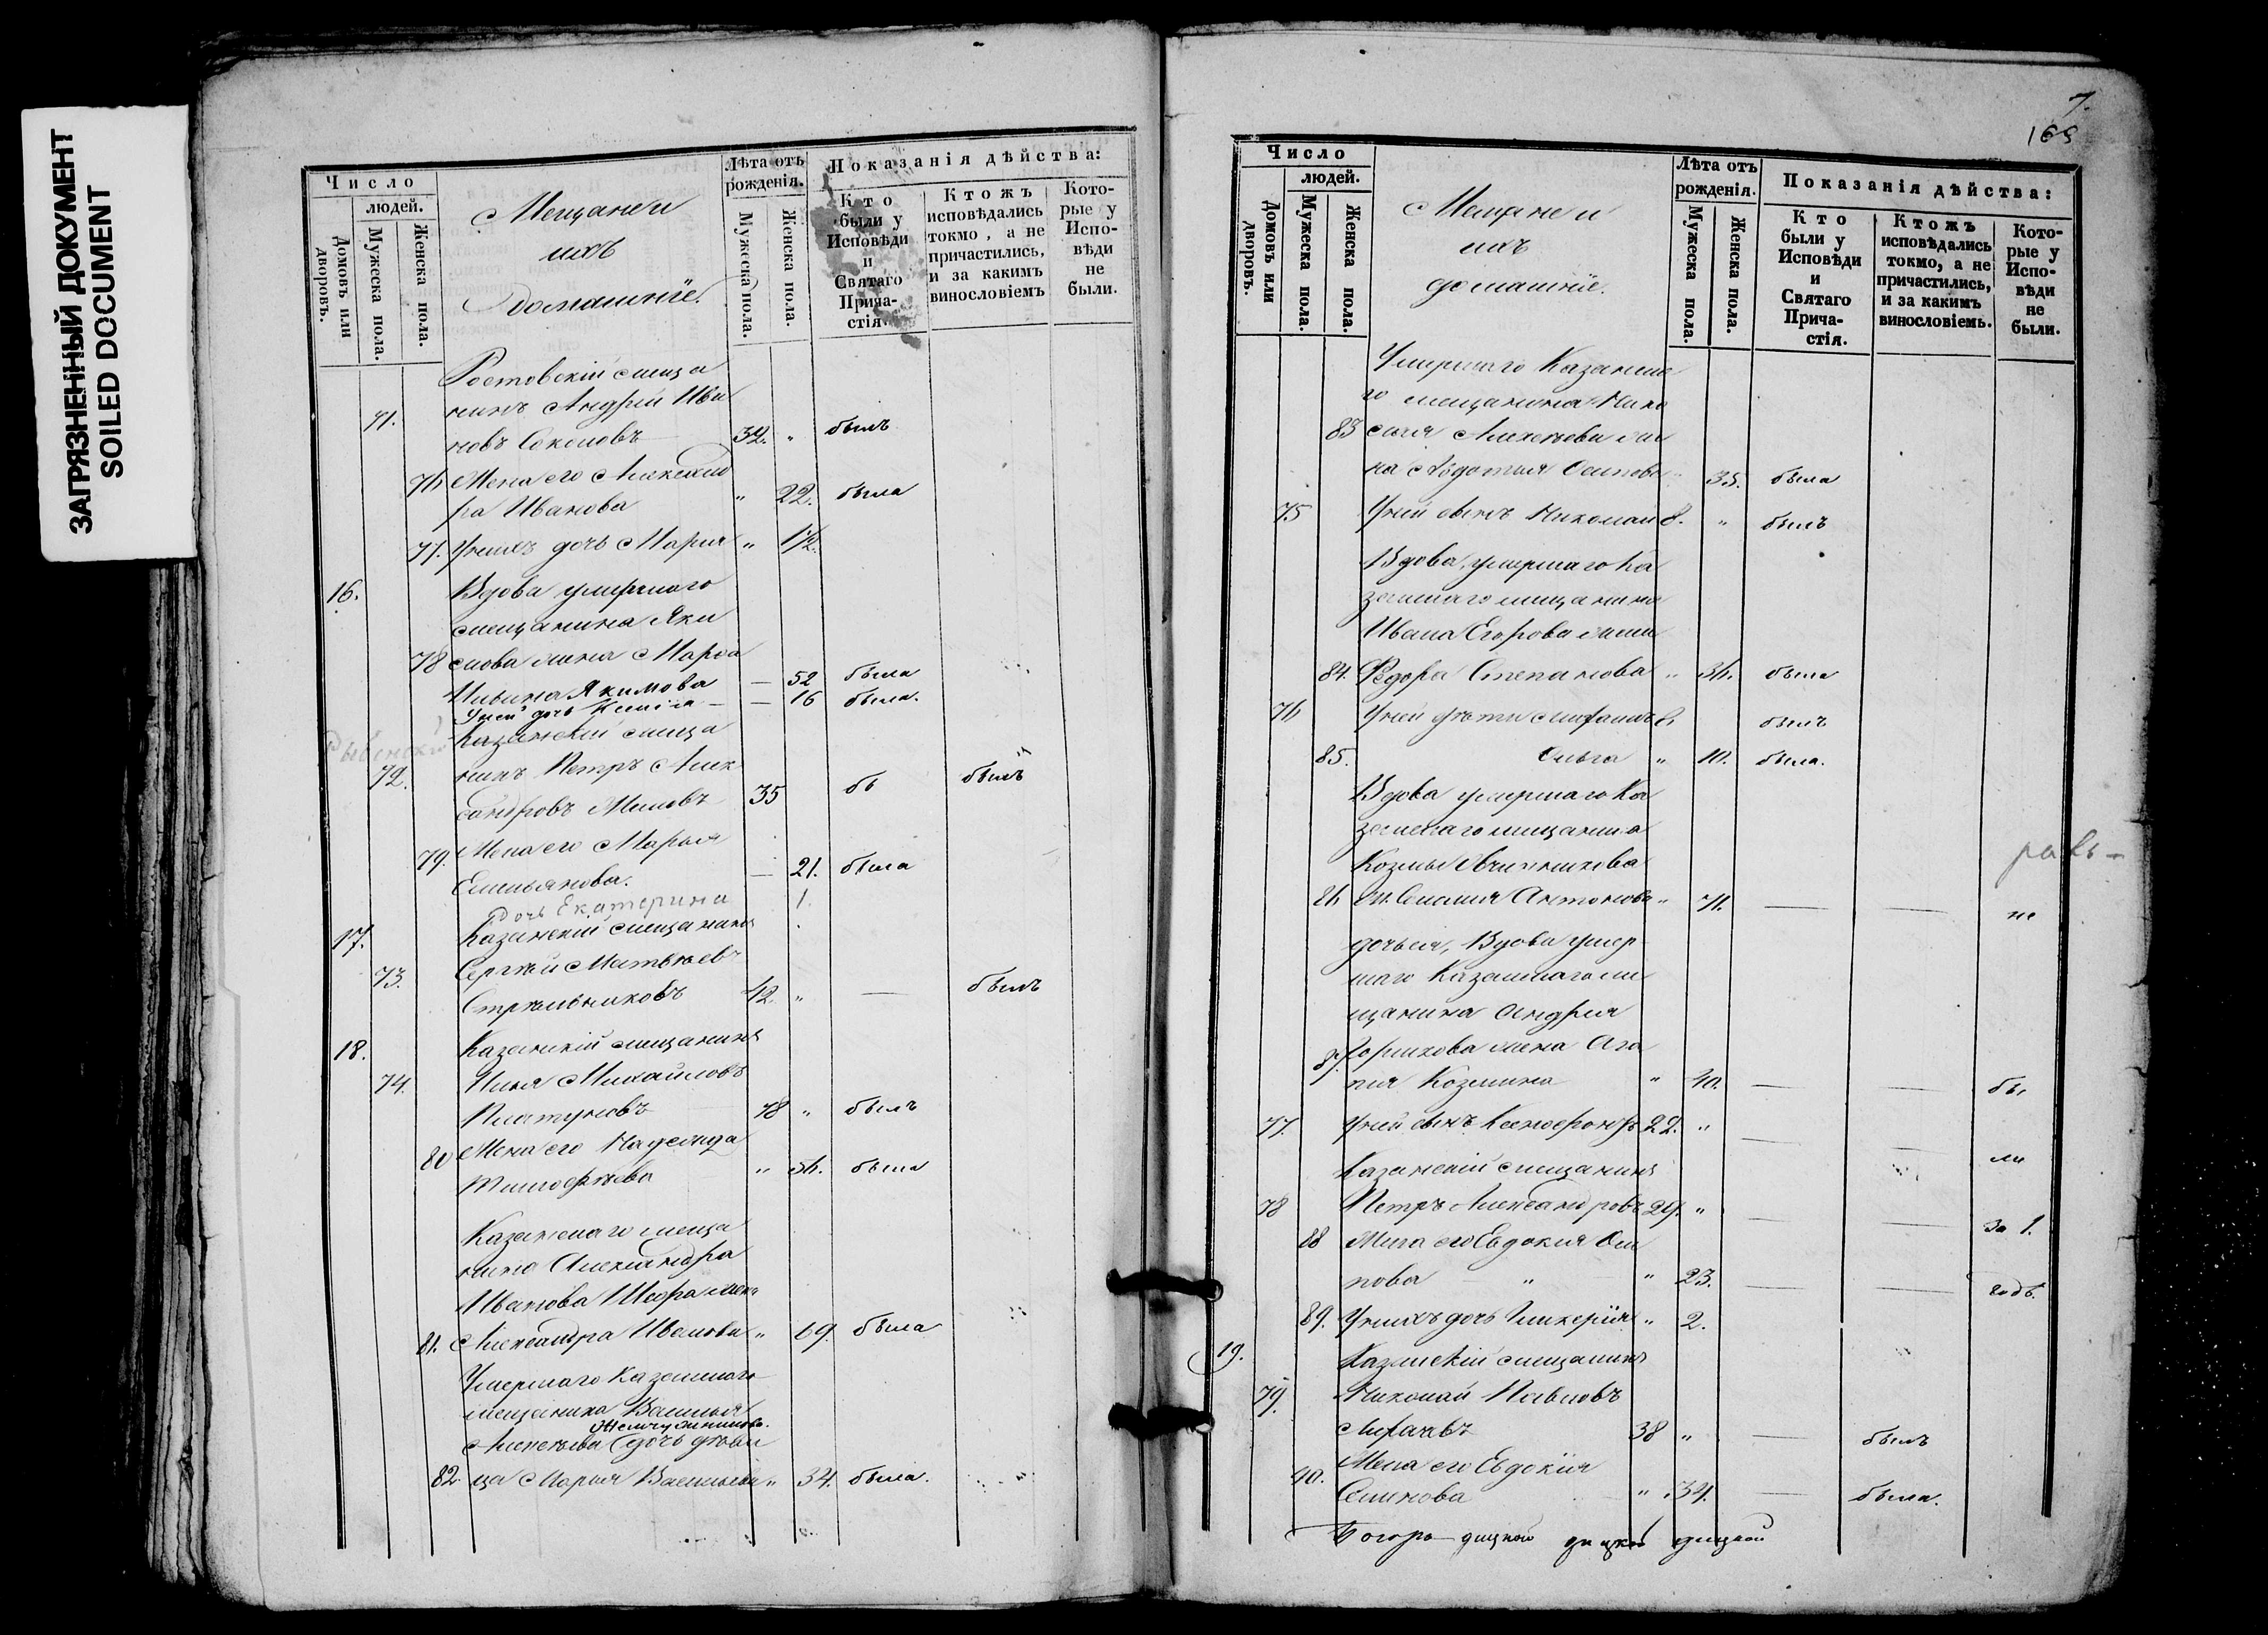 ЗАГРЯЗНЕННЫЙ ДОКУМЕНТ
SOILED DOCUMENT
Число
людей.
Домовъ или дворовъ.
Мужеска пола.
Женска пола.
Мещане и
ихъ
домашніе.
Лѣта отъ рожденія.
Мужеска пола.
Женска пола.
Показанія дѣйства:
Кто были у Исповѣди и Святаго Причастія.
Ктожъ исповѣдались токмо, а не причастились, и за какимъ винословіемъ
Которые у Исповѣди не были.
Ростовскій меща
71. нинъ Андрей Ива
новъ Соколовъ 32. " былъ
76 Жена его Александ
ра Иванова " 22. была
77. У нихъ дочь Марія " 1/2.
16. Вдова умершаго
мещанина Яки
78 мова жена Марѳа
Ильина Якимова — 52 была
У ней дочь Ксенія — 16 была.
Казанскій меща
72. нинъ Петръ Алек
сандровъ 35 бы былъ
79. Жена его Марья
Емельянова. — 21. была
Дочь Екатерина 1.
17. Казанскій мещанинъ
73. Сергѣй Матвѣевъ
Стрѣльниковъ 42 " — былъ
18. Казанскій мещанинъ
74. Илья Михайловъ
Платуновъ 78 " былъ
80 Жена его Надежда
Тимоѳѣева " 56. была
Казанскаго меща
нина Александра
Иванова жена
81. Александра Иванова " 69. была
Умершаго Казанскаго
мещанина Василья
Жемчужникова.
Алексѣева дочь дѣви
82. ца Марья Васильева " 34. была.
7.
165
Число
людей.
Домовъ или дворовъ.
Мужеска пола.
Женска пола.
Мещане и
ихъ
домашніе.
Лѣта отъ рожденія.
Мужеска пола.
Женска пола.
Показанія дѣйства:
Кто были у Исповѣди и Святаго Причастія.
Ктожъ исповѣдались токмо, а не причастились, и за какимъ винословіемъ.
Которые у Исповѣди не были.
Умершаго Казанска
го мещанина Нико
83 лая Алексѣева же
на Авдотья Осипова " 35. была
75 У ней сынъ Николай 8. " былъ
Вдова, умершаго Ка
занскаго мещанина
Ивана Егорова жена
84. Ѳедора Степанова " 36. была
76 У ней дѣти былъ
85. Ольга " 10. была.
Вдова умершаго Ка
занскаго мещанина
Козмы
86 Антонова " 71. — — не
дочь ея, Вдова умер
шаго Казанскаго ме
щанина Андрея
87. жена Ага
пія Козмина " 40. — — бы
77. У ней сынъ Ксенофонтъ 22. " — ли
Казанскій мещанинъ
78 Петръ Александровъ 29. " — — за 1.
88 Жена его Евдокія Оси
пова " " 23. — — годъ.
89. У нихъ дочь Гликерія " 2.
19. Казанскій мещанинъ
79. Николай Павловъ
38 " — былъ
90. Жена его Евдокія
Семенова " 34. — была.
Богоро дицкой дицкой дицкой